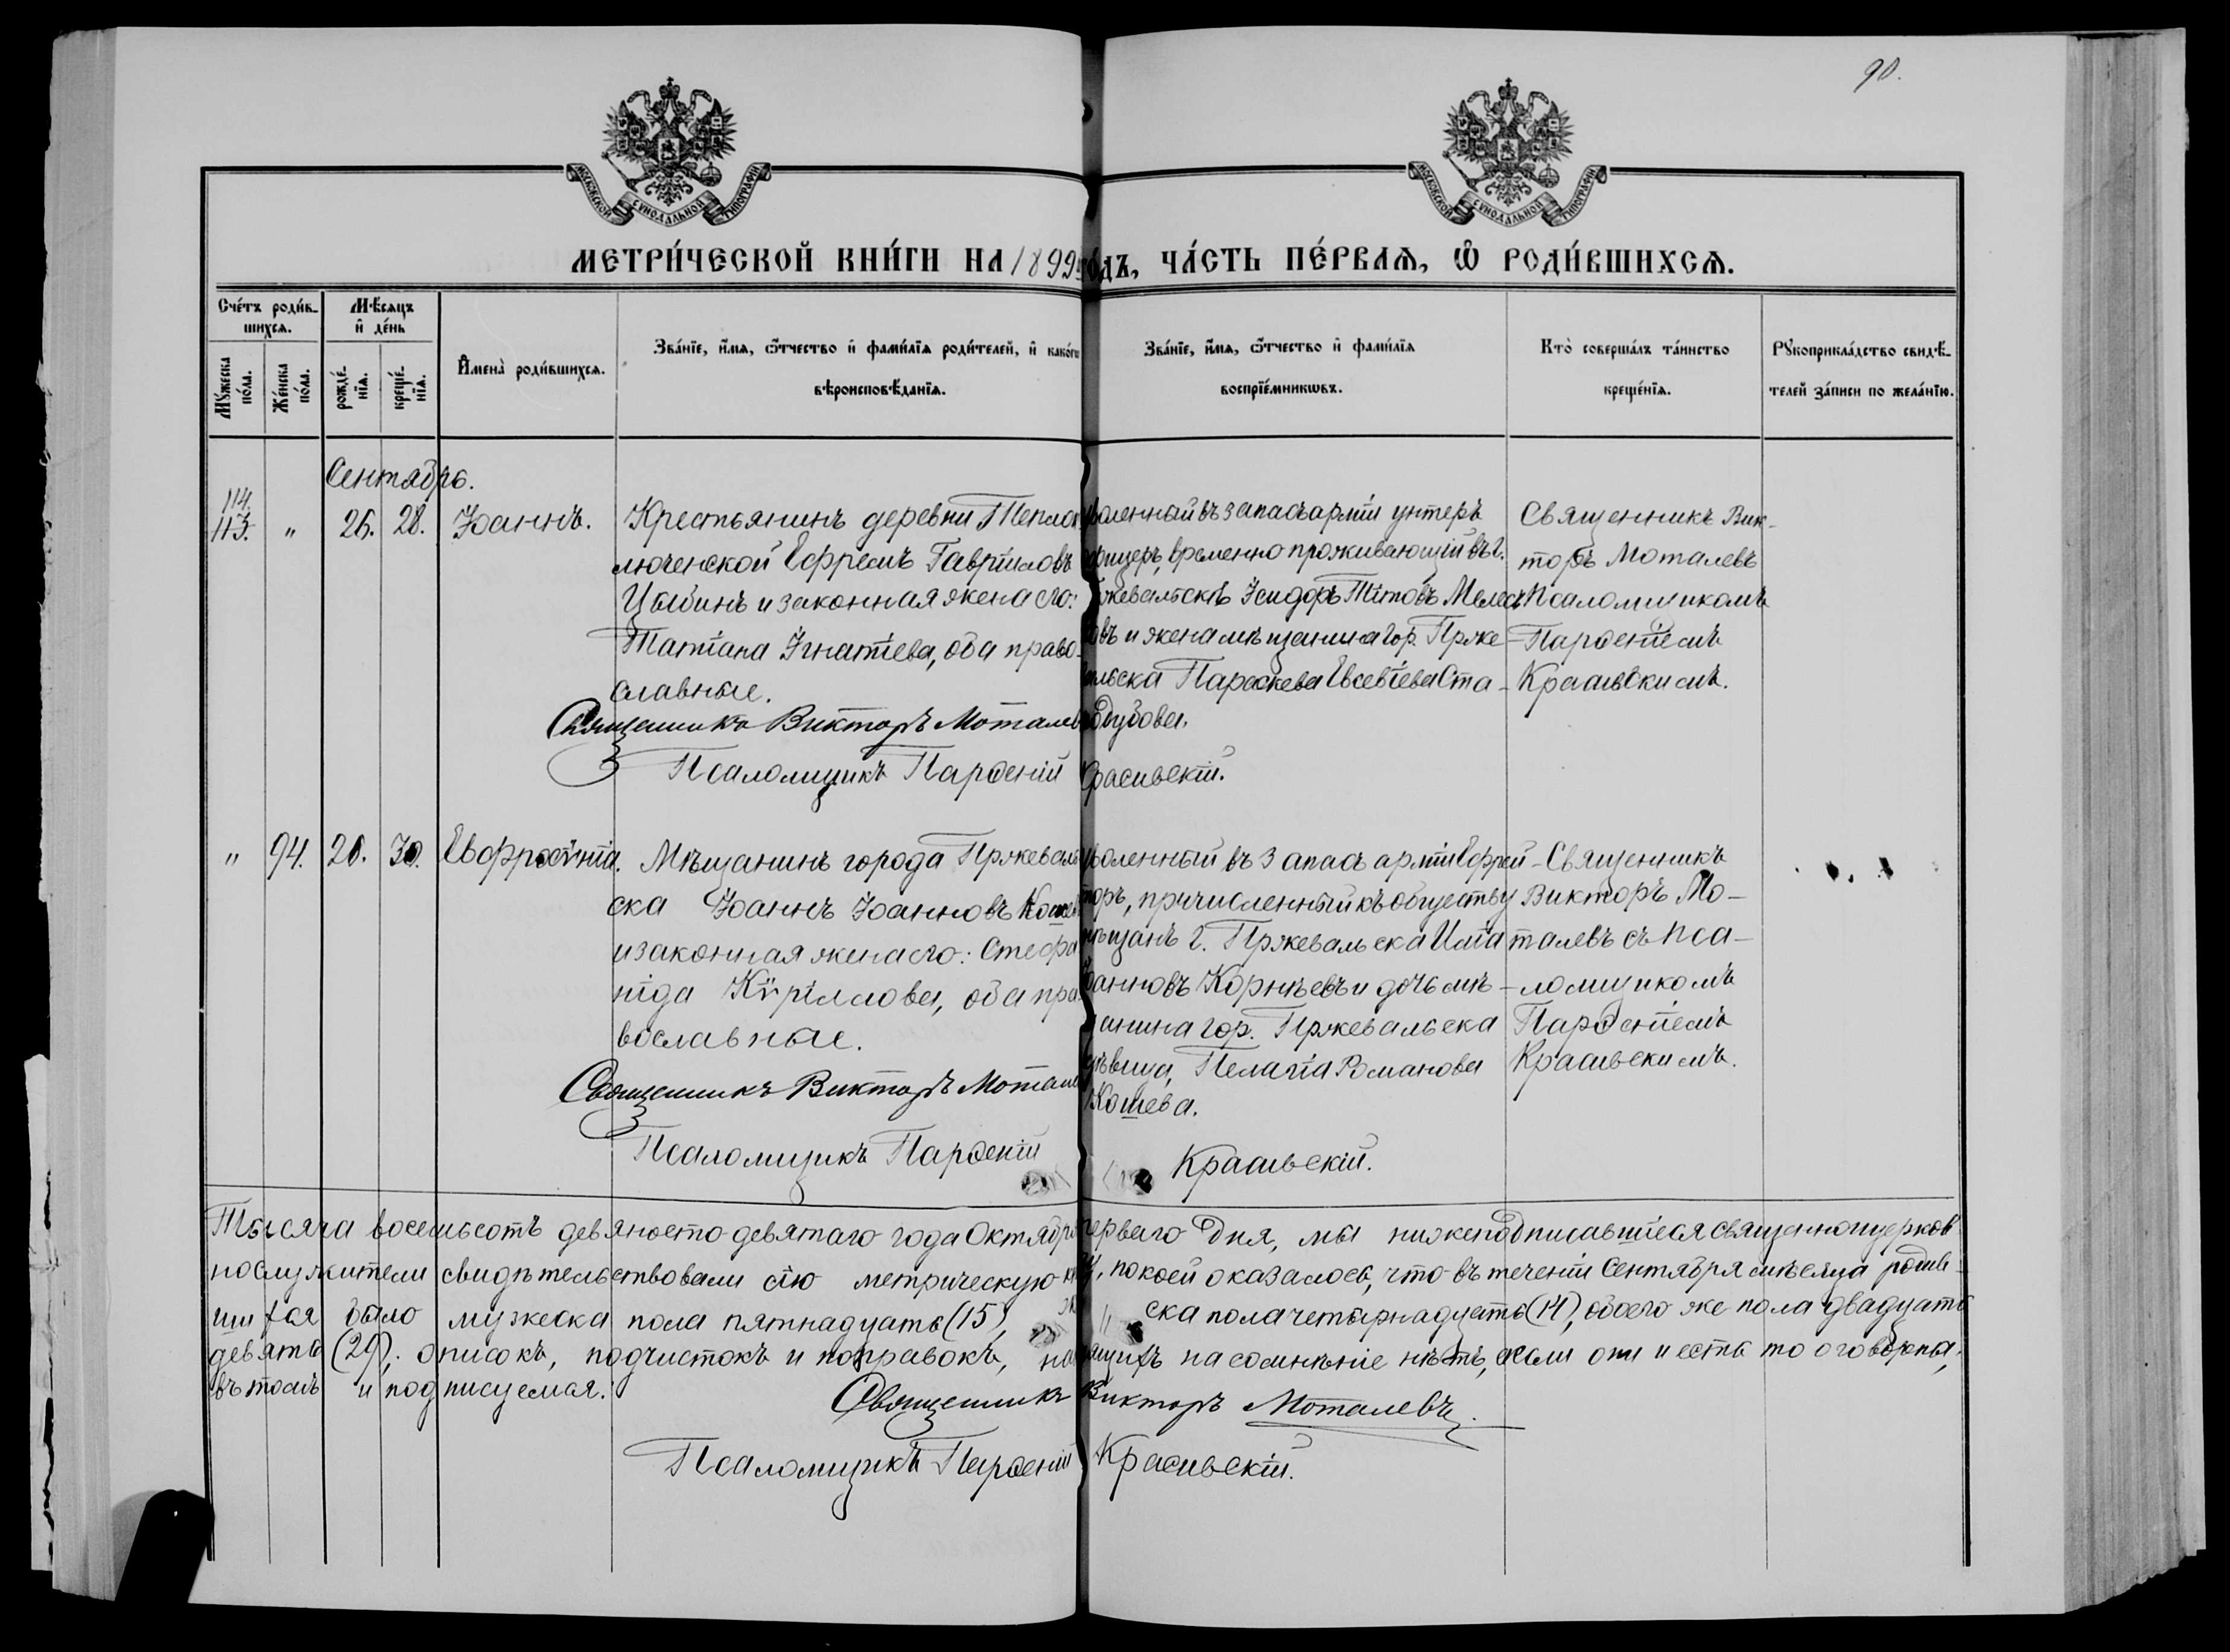 90.
МОСКОВСКОЙ СѴНОДАЛЬНОЙ ТИПОГРАФІИ
МОСКОВСКОЙ СѴНОДАЛЬНОЙ ТИПОГРАФІИ
МЕТРИ́ЧЕСКОЙ КНИ́ГИ НА 1899 го́дъ, ЧА́СТЬ ПЕ́РВАѦ, Ѡ҆ РОДИ́ВШИХСѦ.
Сче́тъ роди́в-
шихсѧ.
Мѣ́сѧцъ
и҆ де́нь
Мꙋ́жеска
по́ла.
Же́нска
по́ла.
рожде́-
нїѧ.
креще́-
нїѧ.
И҆мена̀ роди́вшихсѧ.
Зва́нїе, и҆́мѧ, ѻ҆́тчество и҆ фами́лїѧ роди́телей, и҆ како́гѡ
вѣроисповѣ́данїѧ.
Зва́нїе, и҆́мѧ, ѻ҆́тчество и҆ фами́лїѧ
воспрїе́мникѡвъ.
Кто̀ соверша́лъ та́инство
креще́нїѧ.
Рꙋкоприкла́дство свидѣ́-
телей за́писи по жела́нїю.
Сентябрь.
114.
113. " 26. 28. Іоаннъ.
Крестьянинъ деревни Тепло
люченской Ефремъ Гавріиловъ
Цыбинъ и законная жена его:
Татіана Игнатіева, оба право-
славные.
Священникъ Викторъ Моталев
Псаломщикъ Парѳеній Красивскій.
воленный въ запасъ арміи унтеръ
офицеръ, временно проживающій въ г.
Пржевальскѣ Исидоръ Титовъ
овъ и жена мѣщанина гор. Прже-
вальска Параскева Евсевіева Ста-
родубова.
Священникъ Вик-
торъ Моталевъ
Псаломщикомъ
Парѳеніемъ
Красивскимъ.
" 94. 20. 30. Евфросинія.
Мѣщанинъ города Пржеваль
ска Іоаннъ Іоанновъ Кошев
и законная жена его: Стефа
нида Кѵриллова, оба пра-
вославные.
Священникъ Викторъ Моталев
Псаломщикъ Парѳеній Красивскій.
воленный въ запасъ арміи Ефрей-
торъ, причисленный къ обществу
мѣщанъ г. Пржевальска Илія
Іоанновъ Корнѣевъ и дочь мѣ-
щанина гор. Пржевальска
дѣвица, Пелагія Романова
Кошева.
Священникъ
Викторъ Мо-
талевъ съ пса-
ломщикомъ
Парѳеніемъ
Красивскимъ.
Тысяча восемьсотъ девяносто девятаго года Октября перваго дня, мы нижеподписавшіеся священноцерков-
нослужители свидѣтельствовали сію метрическую кн у, по коей оказалось, что въ теченіи Сентября мѣсяца родив-
шихся было мужеска пола пятнадцать (15), же " ска пола четырнадцать (14), обоего же пола двадцать
девять (29); описокъ, подчистокъ и поправокъ, на ящихъ на сомнѣніе нѣтъ, если они и есть то оговорены,
въ томъ и подписуемся:
Священникъ Викторъ Моталевъ.
Псаломщикъ Парѳеній Красивскій.